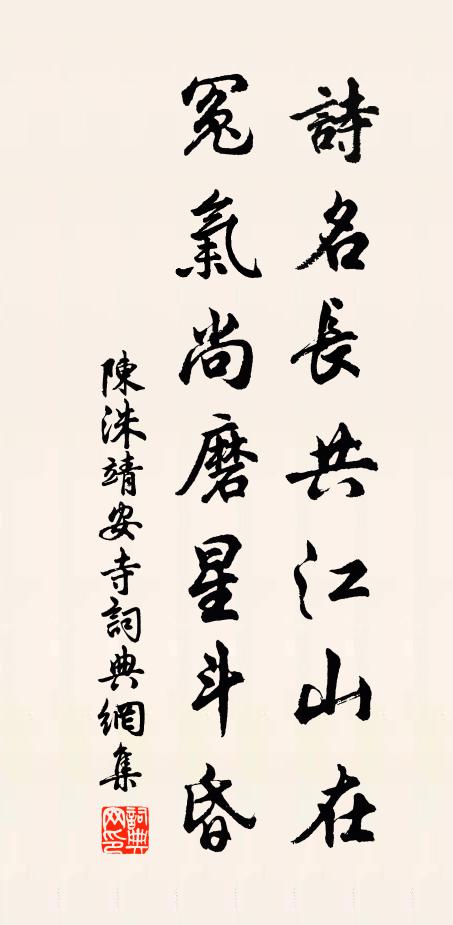 詩名長共江山在
冤氣尚磨星斗昏
陳洙靖安寺詞典網集
詞典網印